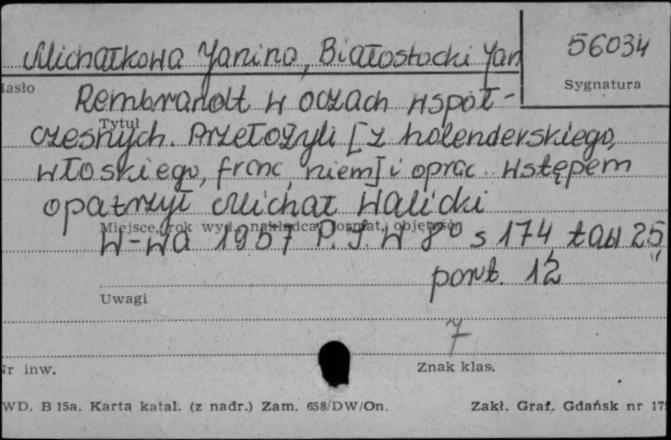 Michałkowa Janina, Białostocki Jan
56034
Sygnatura
Hasło
Rembrandt w oczach współ-
Tytuł
czesnych. Przełożyli [z holenderskiego,
włoskiego, franc, niem] i oprac. wstępem
opatrzył Michał Walicki
Miejsce, rok wyd., nakładca, format, objętość
W-wa 1957 P.I.W 8° s 174, tabl 25,
port. 12
Uwagi
7
Nr inw.
Znak klas.
WD. B 15a. Karta katal. (z nadr.) Zam. 658/DW/On.
Zakł. Graf. Gdańsk nr 17